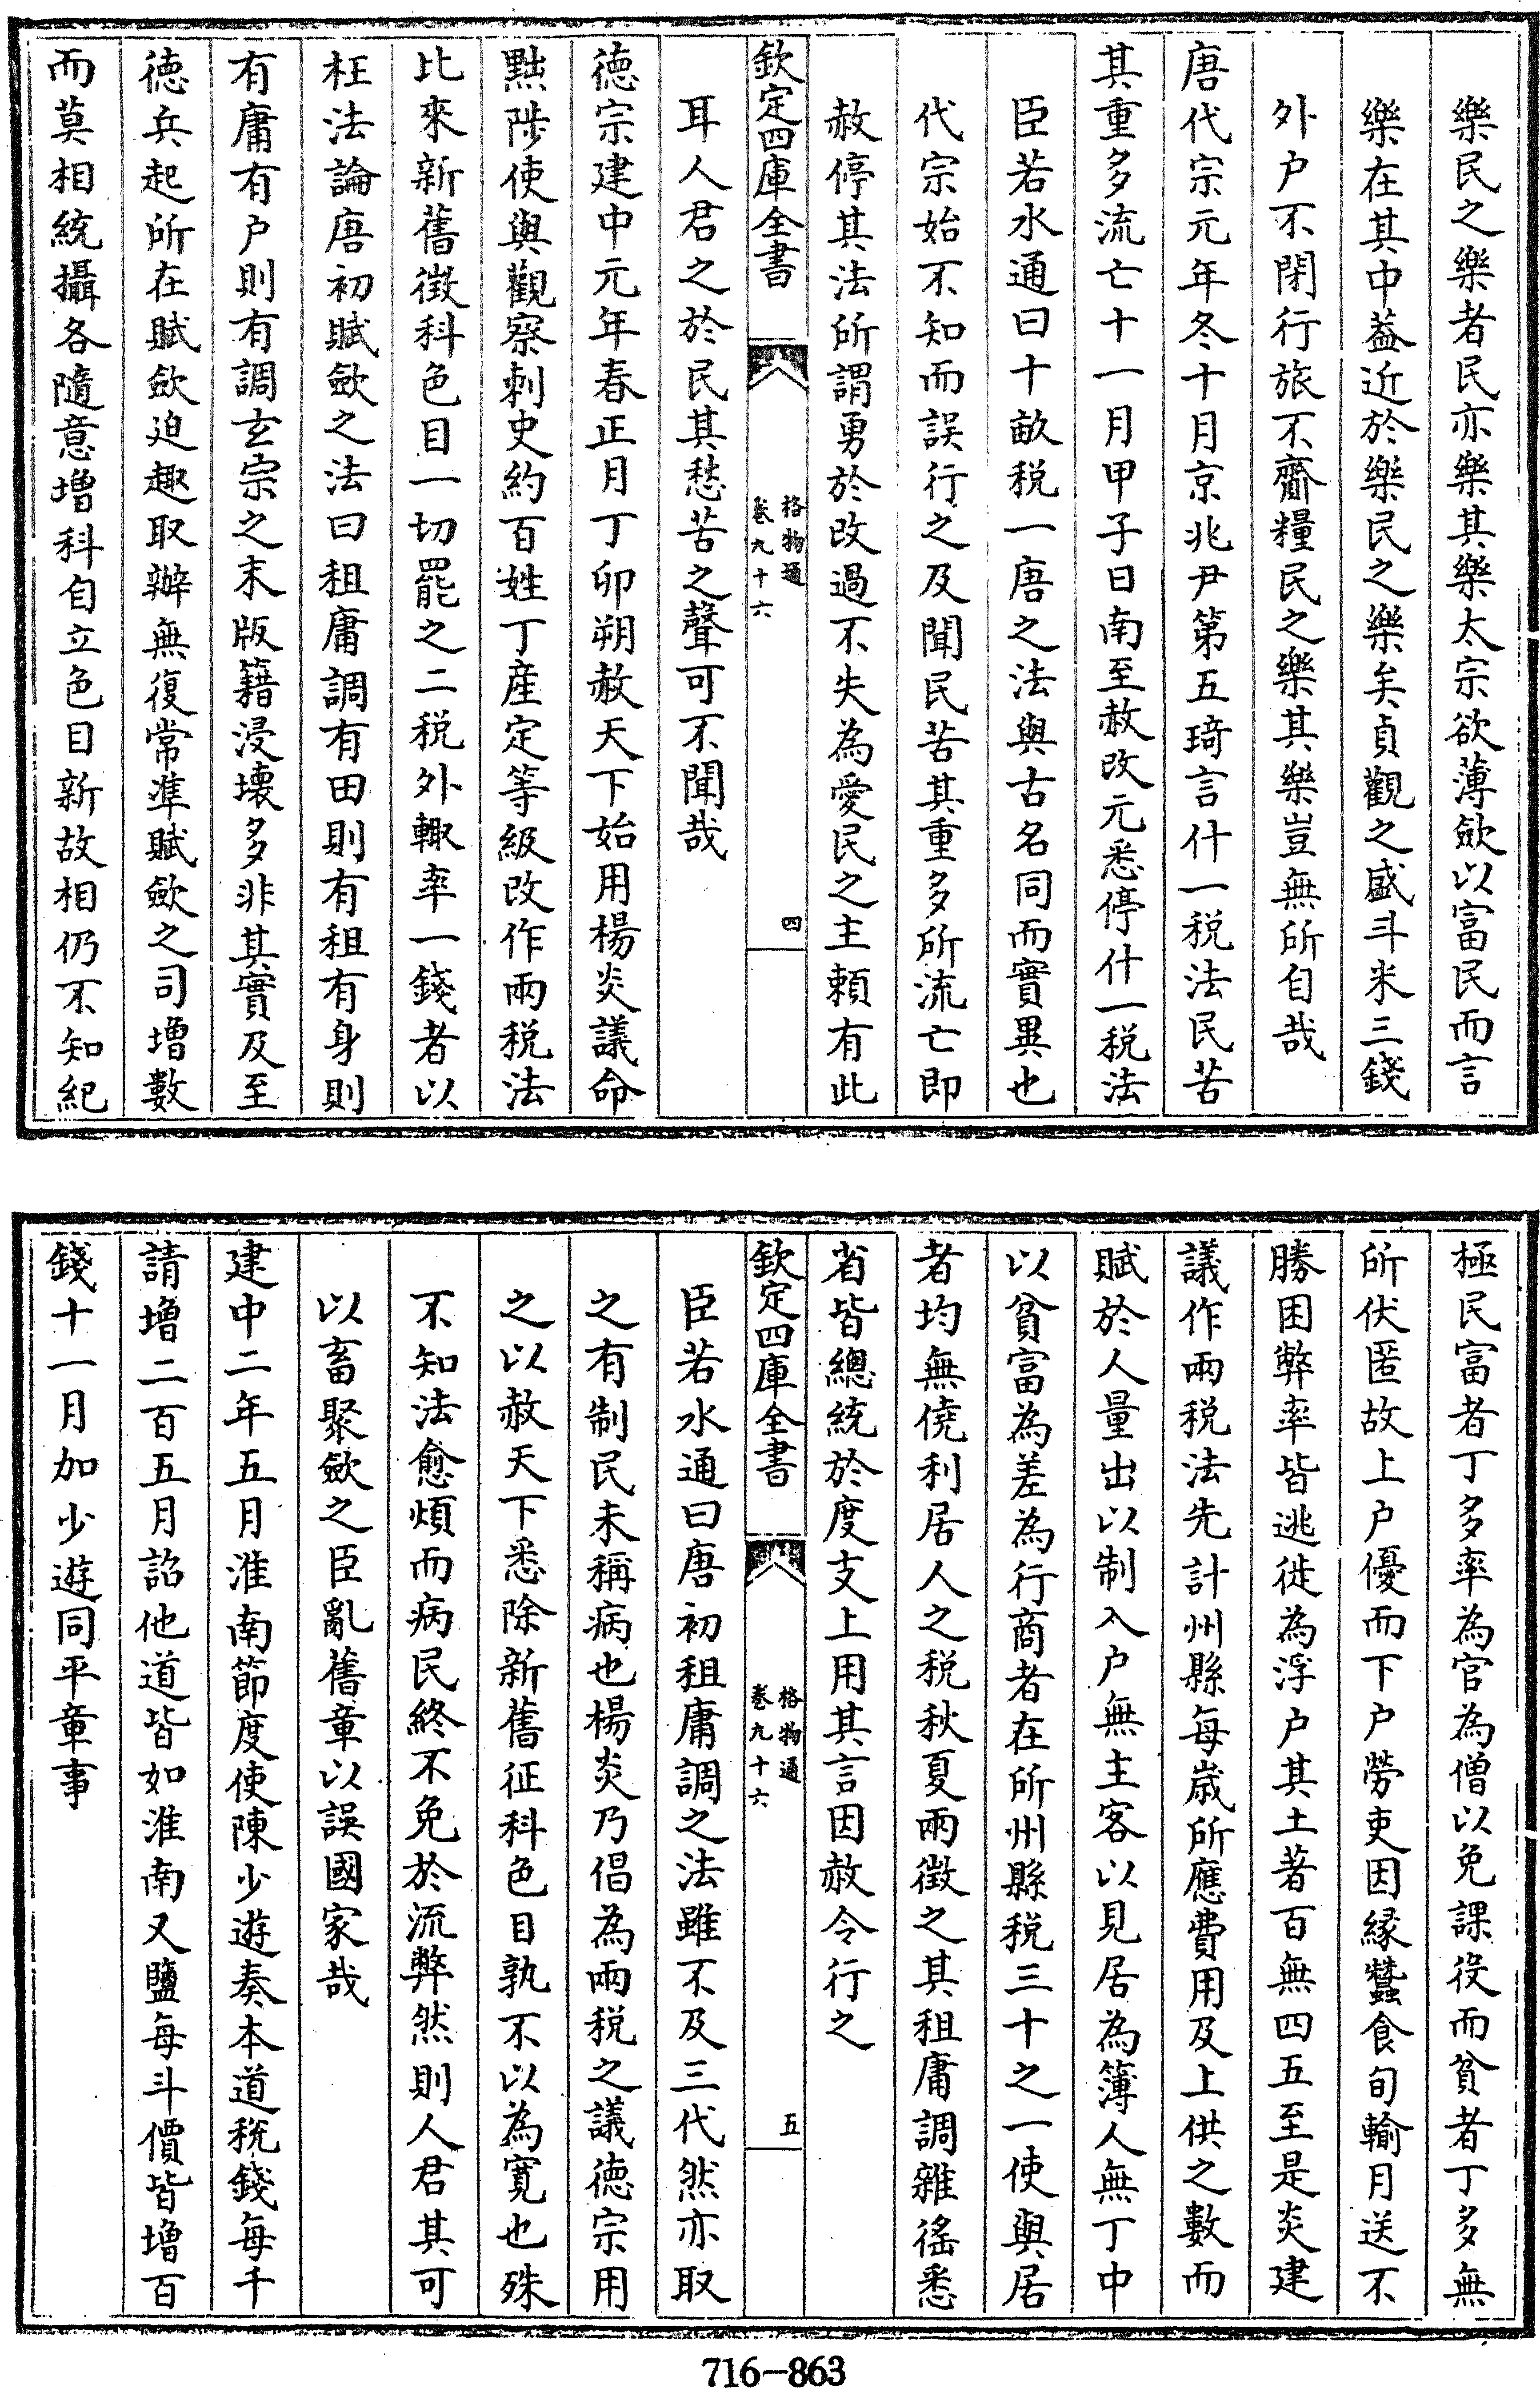 樂民之樂者民亦樂其樂太宗欲薄歛以富民而言
樂在其中葢近於樂民之樂矣貞觀之盛斗米三錢
外户不閉行旅不齎糧民之樂其樂豈無所自哉
唐代宗元年冬十月京兆尹第五琦言什一税法民苦
其重多流亡十一月甲子日南至赦改元悉停什一税法
臣若水通曰十畝税一唐之法與古名同而實異也
代宗始不知而誤行之及聞民苦其重多所流亡即
赦停其法所謂勇於改過不失為愛民之主頼有此
欽定四庫全書
格物通
卷九十六
四
耳人君之於民其愁苦之聲可不聞哉
德宗建中元年春正月丁卯朔赦天下始用楊炎議命
黜陟使與觀察刺史約百姓丁産定等級改作兩税法
比來新舊徴科色目一切罷之二税外輙率一錢者以
枉法論唐初賦歛之法曰租庸調有田則有租有身則
有庸有户則有調玄宗之末版籍浸壞多非其實及至
德兵起所在賦歛迫趣取辦無復常準賦歛之司増數
而莫相統攝各隨意増科自立色目新故相仍不知紀
極民富者丁多率為官為僧以免課役而貧者丁多無
所伏匿故上户優而下户勞吏因緣蠶食旬輸月送不
勝困弊率皆逃徙為浮户其土著百無四五至是炎建
議作兩税法先計州縣每歳所應費用及上供之數而
賦於人量出以制入户無主客以見居為簿人無丁中
以貧富為差為行商者在所州縣税三十之一使與居
者均無僥利居人之税秋夏兩徴之其租庸調雜徭悉
省皆總統於度支上用其言因赦令行之
欽定四庫全書
格物通
卷九十六
五
臣若水通曰唐初租庸調之法雖不及三代然亦取
之有制民未稱病也楊炎乃倡為兩税之議德宗用
之以赦天下悉除新舊征科色目孰不以為寛也殊
不知法愈煩而病民終不免於流弊然則人君其可
以畜聚歛之臣亂舊章以誤國家哉
建中二年五月淮南節度使陳少遊奏本道税錢每千
請増二百五月詔他道皆如淮南又鹽每斗價皆増百
錢十一月加少遊同平章事
716-863